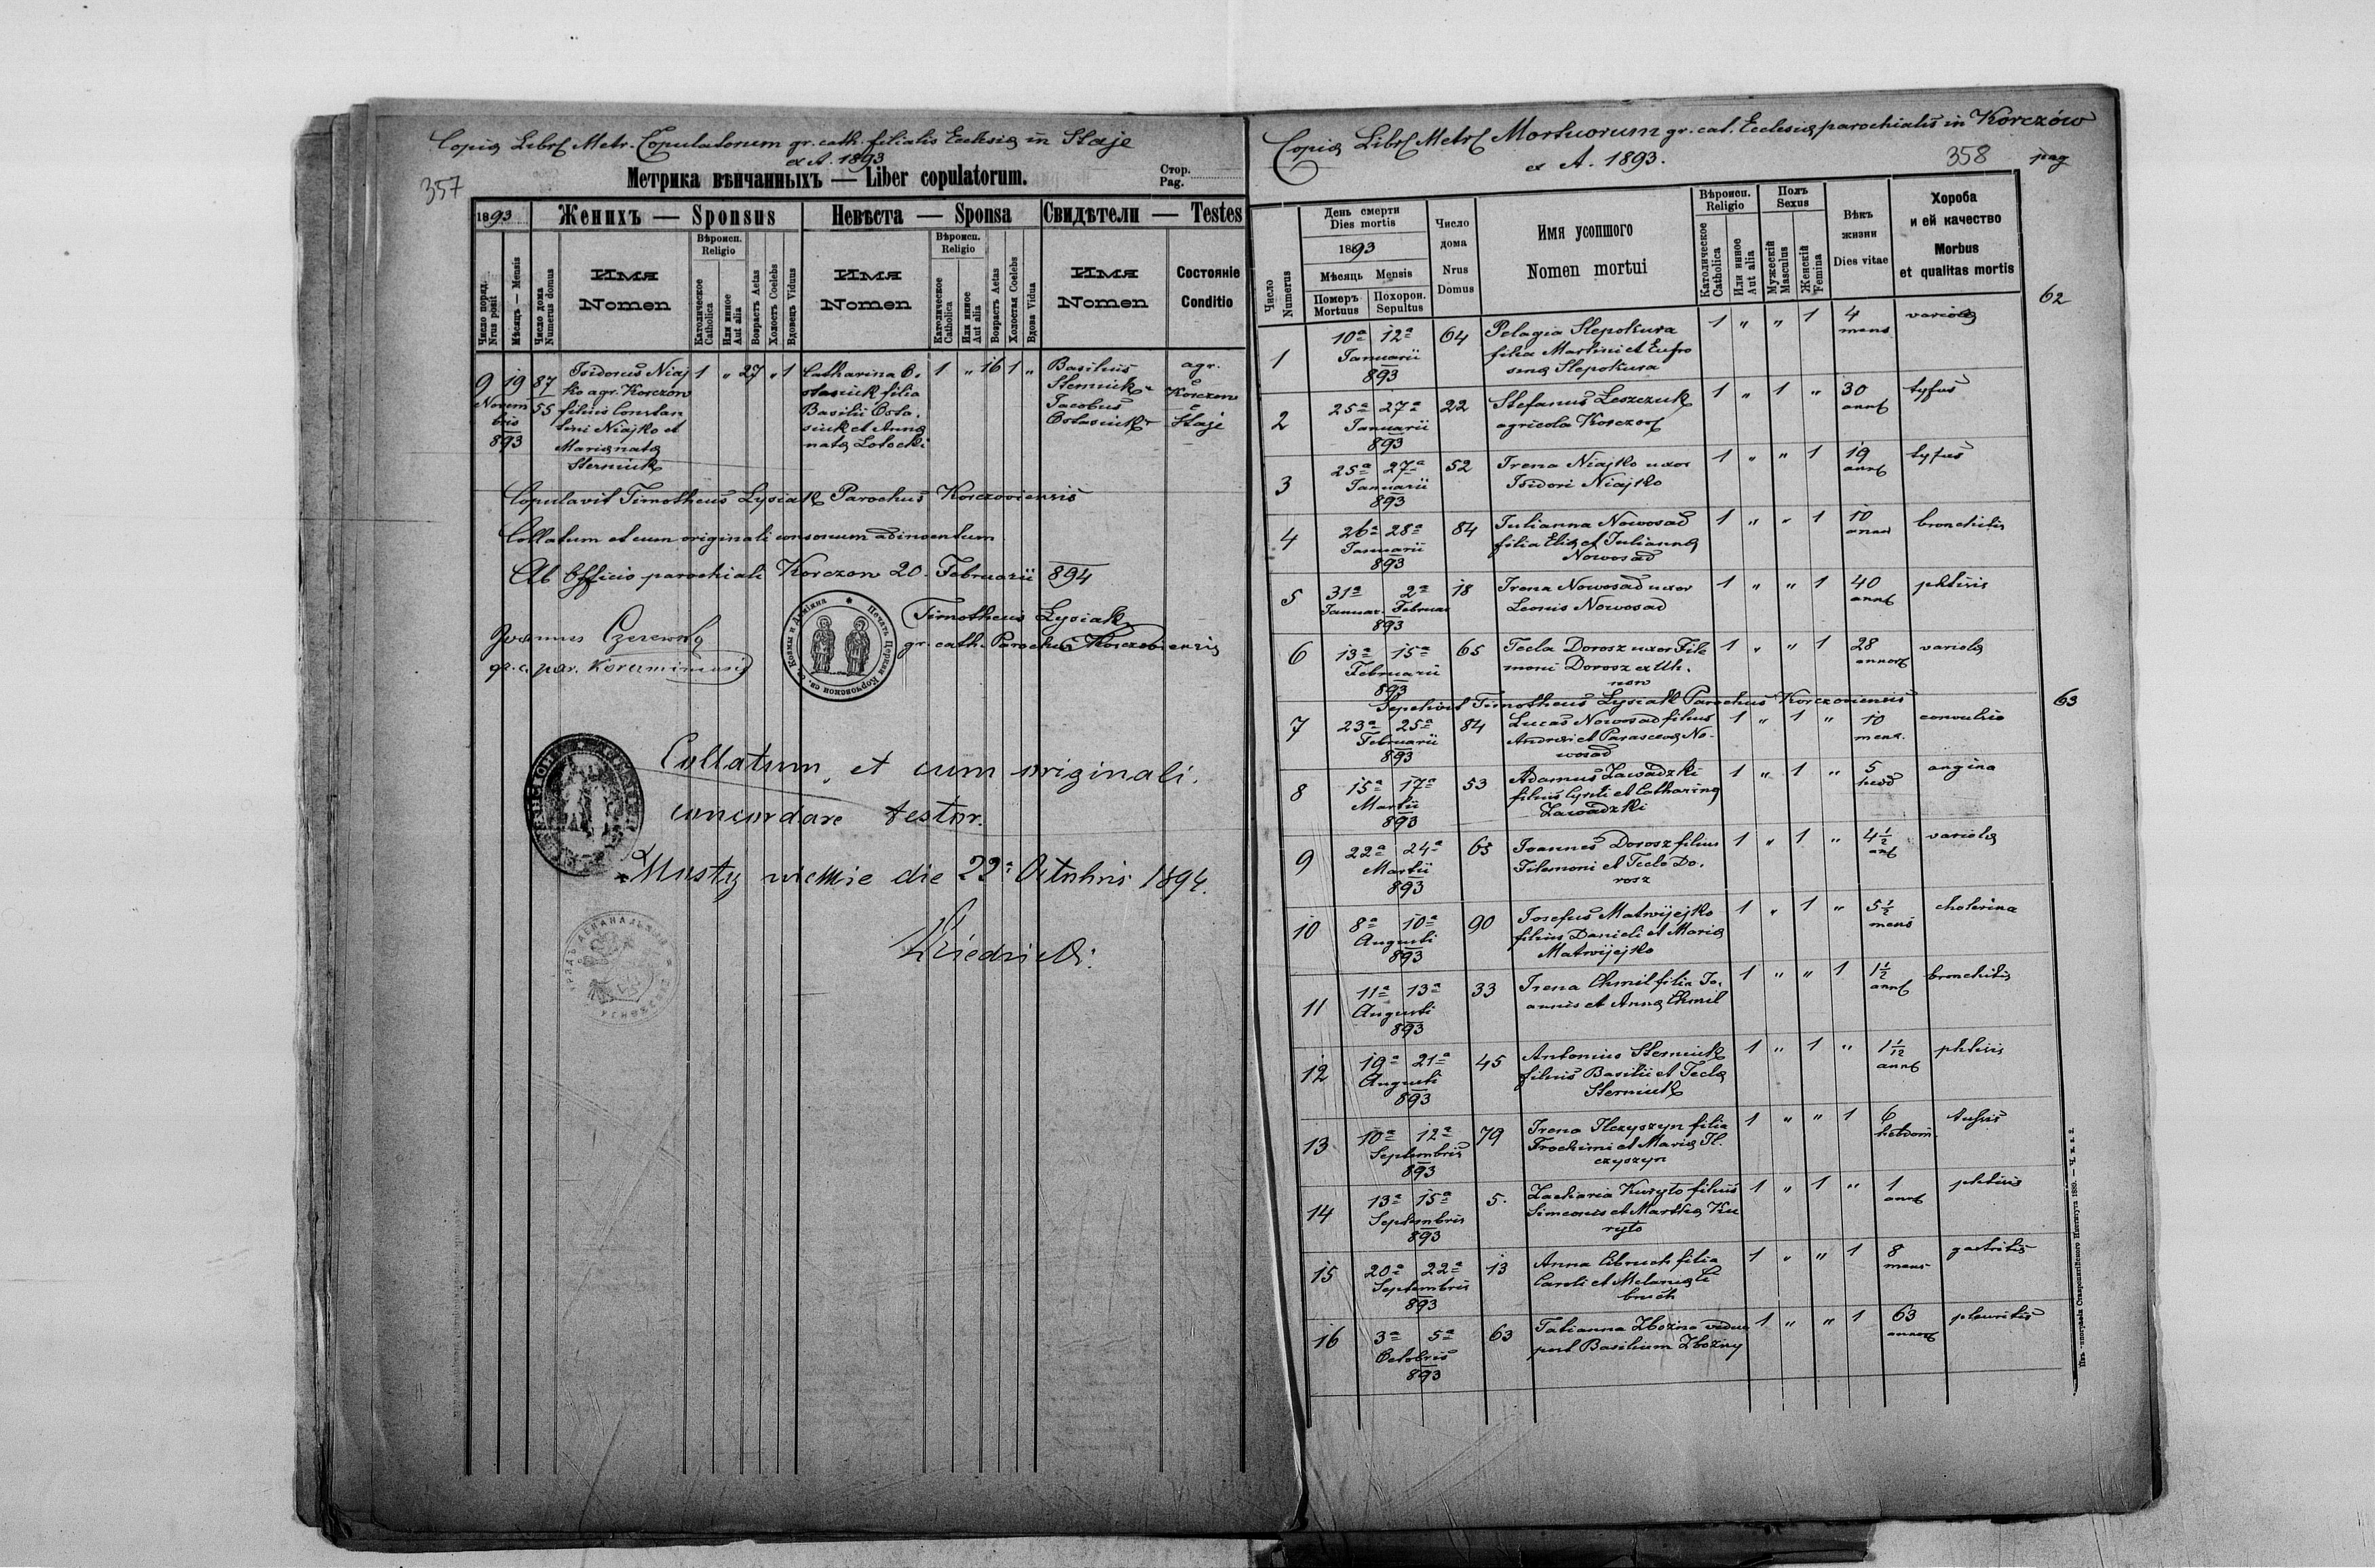 Copia Libri Metr. Copulatorum gr. cath. filialis Ecclesiæ in Staje
ex A. 1893
357
Метрика вѣнчанныхъ — Liber copulatorum.
Стор.
Pag.
1893
Женихъ — Sponsus
Невѣста — Sponsa
Свидѣтели — Testes
Число поряд.
Nrus posit
Мѣсяць — Mensis
Число дома
Numerus domus
Имя
Nomen
Вѣроисп.
Religio
Католическое
Catholica
Или иное
Aut alia
Возрастъ Aetas
Холостъ Coelebs
Вдовецъ Vidus
Имя
Nomen
Вѣроисп.
Religio
Католическое
Catholica
Или иное
Aut alia
Возрастъ Aetas
Холостая Coelebs
Вдова Vidua
Имя
Nomen
Состояніе
Conditio
9 19
Novem
bris
893
87
55
Isidorus Niaj
ko agr. Korczow
filius Constan
tini Niajko et
Mariæ natæ
Sterniuk
1 " 27 " 1
Catharina O.
stasiuk filia
Basilii Osta.
siuk et Annæ
natæ Lotocki
1 " 16 1 "
Basilius
Sterniuk
Jacobus
Ostasiuk
agr.
e
Korczow
e
Staje
Copulavit Timotheus Lysiak Parochus Korczoviensis
Collatum et cum originali consonum adinventum
Ab Officio parochiali Korczow 20. Februarii 894
Timotheus Lysiak
gr. cath. Parochus Korczoviensis
Joannes
gr. c. par.
Печать Церкви Корчовской св. св. Козмы и Даміяна
Collatum, et cum originali
concordare testor.
Musty wielkie die 22ª Octobris 1894.
Copia Libri Metr. Mortuorum gr. cat. Ecclesiæ parochialis in Korczów
ex A. 1893.
358
pag
Число
Numerus
День смерти
Dies mortis
1893
Мѣсяць Mensis
Померъ
Mortuus
Похорон.
Sepultus
Число
дома
Nrus
Domus
Имя усопшого
Nomen mortui
Вѣроисп.
Religio
Католическое
Catholica
Или иное
Aut alia
Полъ
Sexus
Мужескій
Masculus
Женскій
Femina
Вѣкъ
жизни
Dies vitae
Хороба
и ей качество
Morbus
et qualitas mortis
62
1 10ª 12ª 64 Pelagia Slepokura 1 " " 1 4 variola
Januarii filia Martini et Eufro mens
893 sinæ Slepokura
2 25ª 27ª 22 Stefanus Leszczuk 1 " 1 " 30 tyfus
Januarii agricola Korczov annor
893
3 25ª 27ª 52 Irena Niajko uxor 1 " " 1 19 tyfus
Januarii Isidori Niajko
893
4 26ª 28ª 84 Julianna Nowosad 1 " " 1 10 bronchitis
Januarii filia Eliæ et Juliannæ
893 Nowosad
5 31ª 2ª 18 Irena Nowosad uxor 1 " " 1 40 phtisis
Januar. Februar Leonis Nowosad
893
6 13ª 15ª 65 Tecla Dorosz uxor File 1 " " 1 28 variola
Februarii moni Dorosz ex Uh. annor
893 now
Sepelivit Timotheus Lysiak Parochus Korczoviensis
63
7 23ª 25ª 84 Lucas Nowosad filius 1 " 1 " 10 convulsio
Februarii Andreæ et Parascevæ No- mens.
893 wosad
8 15ª 17ª 53 Adamus Zawadzki 1 " 1 " 5 angina
Martii filius Cyrili et Catharinæ
893 Zawadzki
9 22ª 24ª 65 Joannes Dorosz filius 1 " 1 " 4½ variola
Martii Filemoni et Teclæ Do.
893 rosz
10 8ª 10ª 90 Josefus Matwijejko 1 " 1 " 5½ cholerina
Augusti filius Danieli et Mariæ mens
893 Matwijejko
11 11ª 13ª 33 Irena Chmil filia Jo. 1 " " 1 1½ bronchitis
Augusti annis et Annæ Chmil
893
12 19ª 21ª 45 Antonius Sterniuk 1 " 1 " 1 1/12 phtisis
Augusti filius Basilii et Teclæ
893 Sterniuk
13 10ª 12ª 79 Irena Ilczyszyn filia 1 " " 1 6 tussis
Septembris Trochimi et Mariæ Il. hebdom.
893 czyszyn
14 13ª 15ª 5. Zacharia Kuryto filius 1 " 1 " 1 phtisis
Septembris Simeonis et Marthæ Ku
893 ryto
15 20ª 22ª 13 Anna Cibruch filia 1 " " 1 8 gastritis
Septembris Caroli et Melaniæ Ci mens
893 bruch
16 3ª 5ª 63 Tatianna Zbożna vidua 1 " " 1 63 pleuritis
Octobris post Basilium Zbożny annor
893